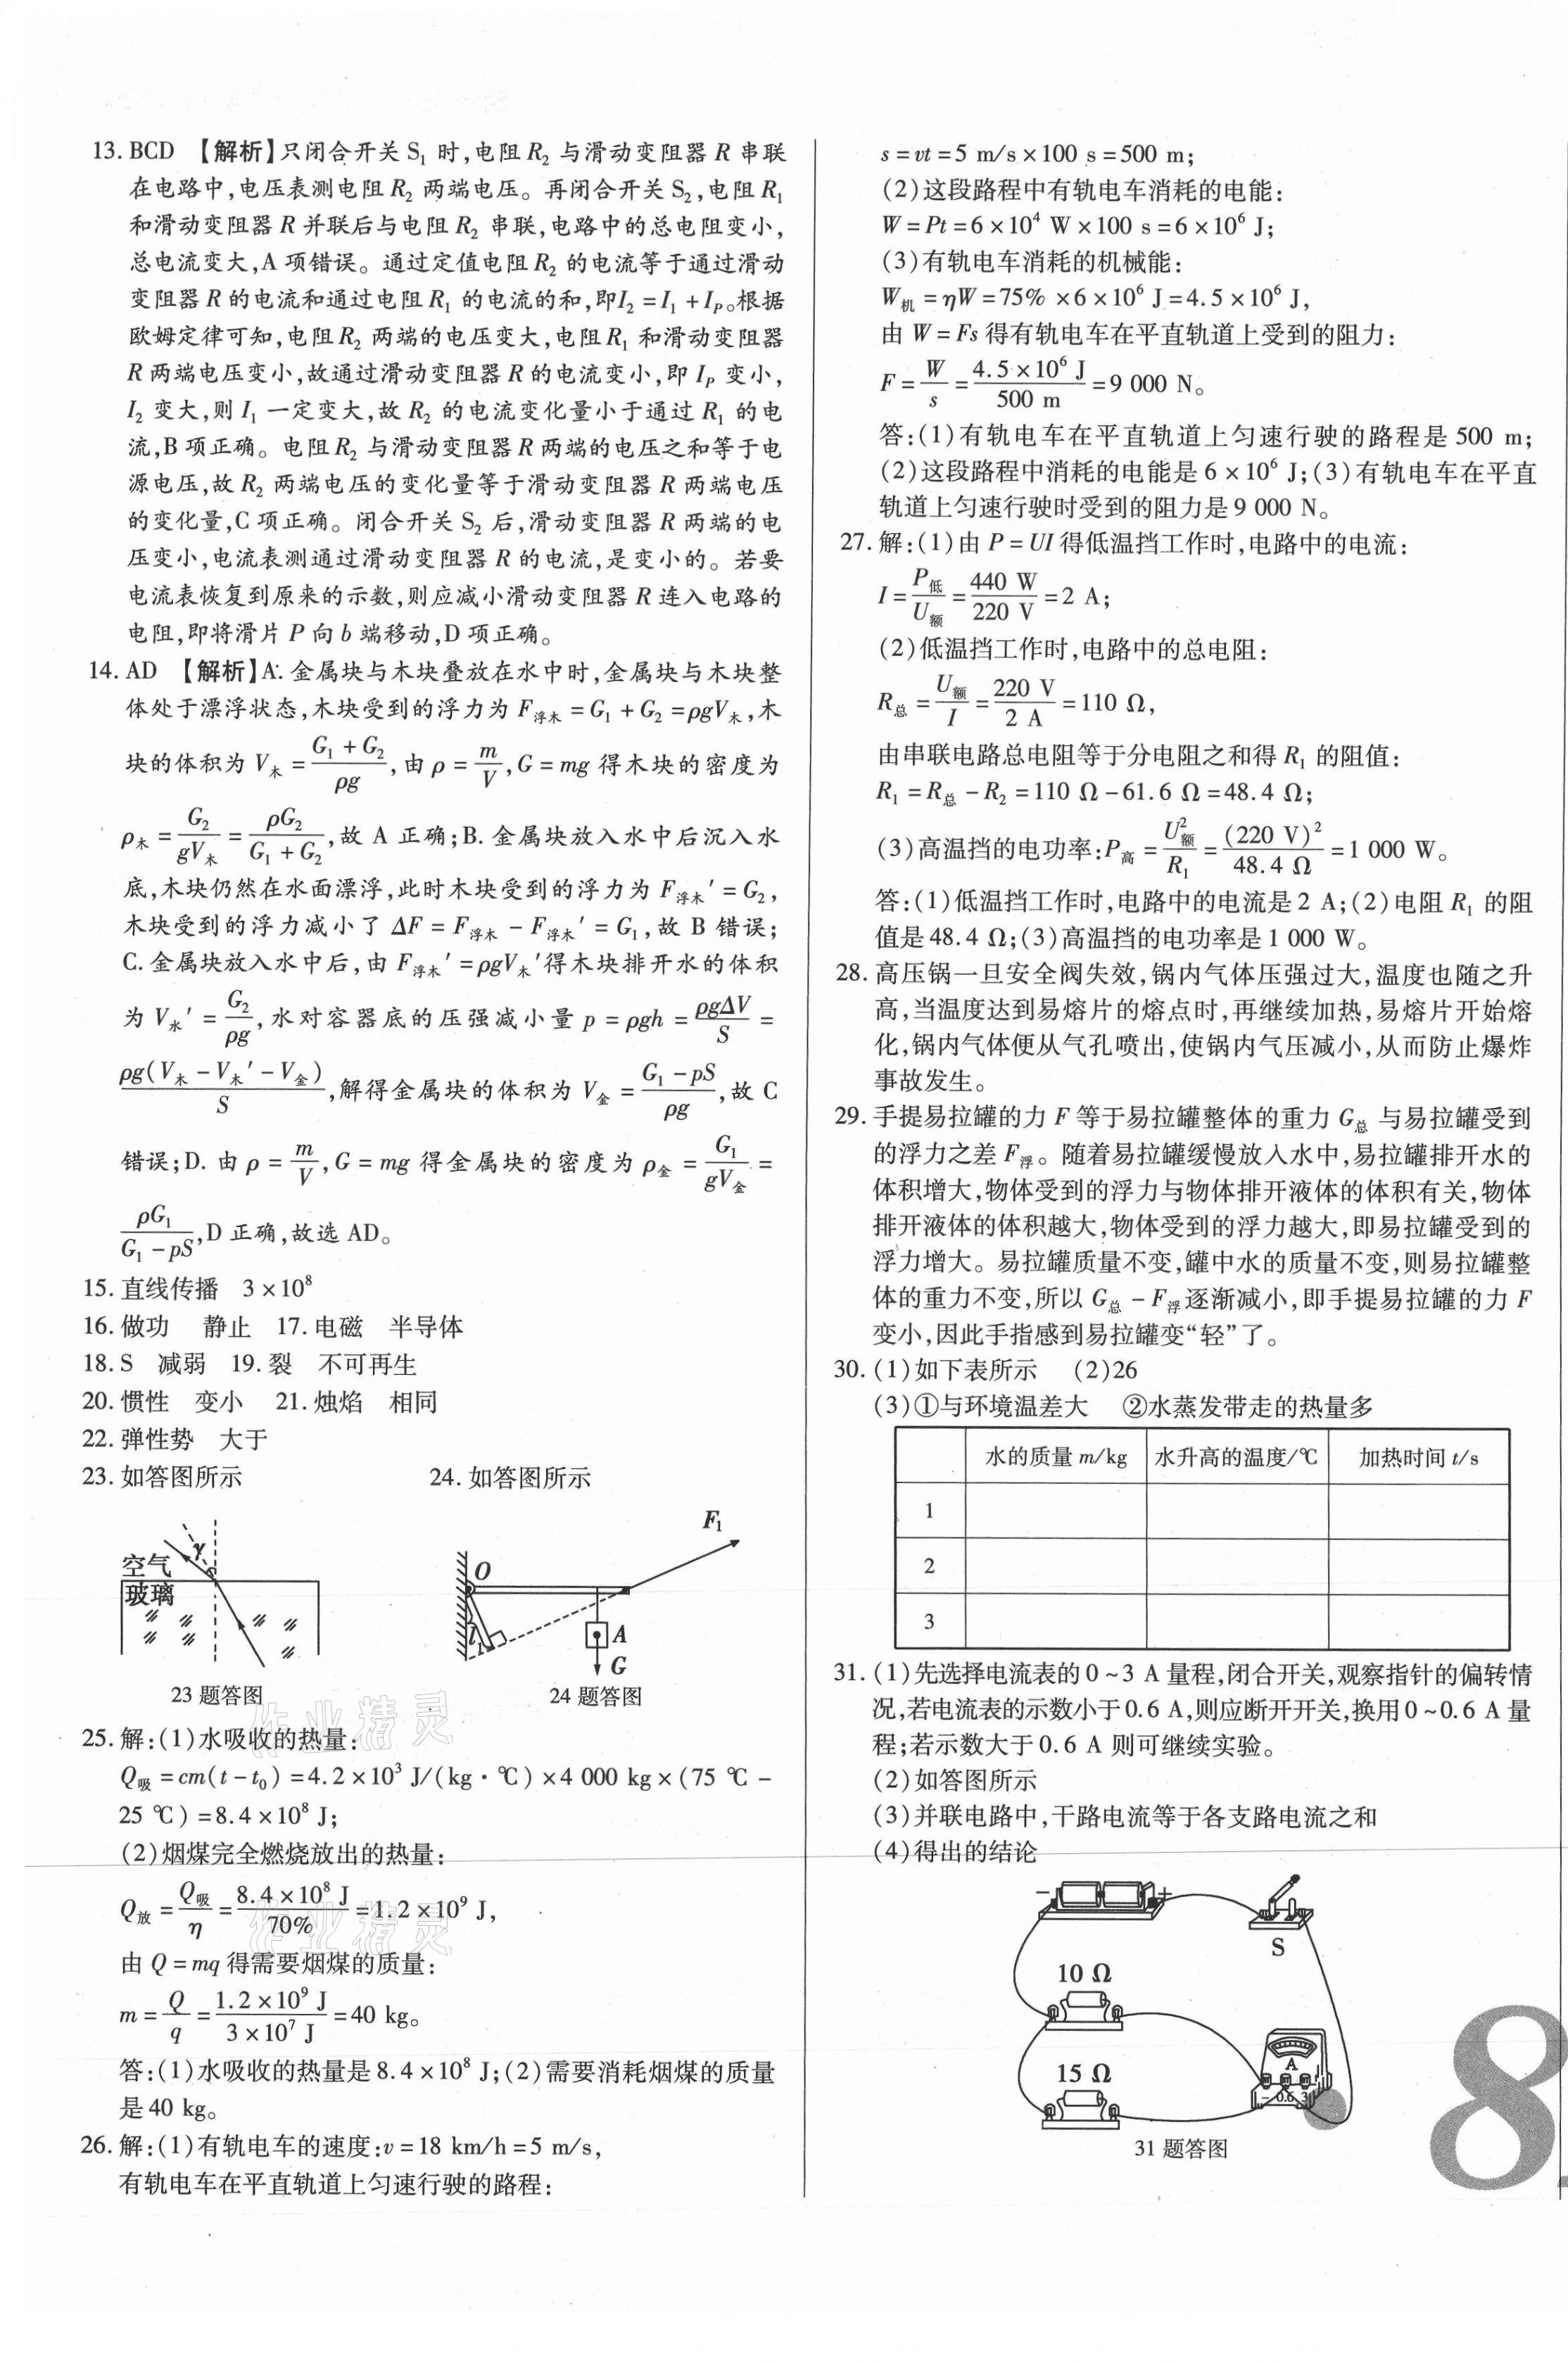 13. BCD 【解析】只闭合开关 S₁ 时,电阻 R₂ 与滑动变阻器 R 串联
在电路中,电压表测电阻 R₂ 两端电压。再闭合开关 S₂,电阻 R₁
和滑动变阻器 R 并联后与电阻 R₂ 串联,电路中的总电阻变小,
总电流变大,A 项错误。通过定值电阻 R₂ 的电流等于通过滑动
变阻器 R 的电流和通过电阻 R₁ 的电流的和,即I₂ = I₁ + I_P。根据
欧姆定律可知,电阻 R₂ 两端的电压变大,电阻 R₁ 和滑动变阻器
R 两端电压变小,故通过滑动变阻器 R 的电流变小,即 I_P 变小,
I₂ 变大,则 I₁ 一定变大,故 R₂ 的电流变化量小于通过 R₁ 的电
流,B 项正确。电阻 R₂ 与滑动变阻器 R 两端的电压之和等于电
源电压,故 R₂ 两端电压的变化量等于滑动变阻器 R 两端电压
的变化量,C 项正确。闭合开关 S₂ 后,滑动变阻器 R 两端的电
压变小,电流表测通过滑动变阻器 R 的电流,是变小的。若要
电流表恢复到原来的示数,则应减小滑动变阻器 R 连入电路的
电阻,即将滑片 P 向 b 端移动,D 项正确。
14. AD 【解析】A. 金属块与木块叠放在水中时,金属块与木块整
体处于漂浮状态,木块受到的浮力为 F浮木 = G₁ + G₂ = ρgV木,木
块的体积为 V木 = (G₁ + G₂)/ρg,由 ρ = m/V,G = mg 得木块的密度为
ρ木 = G₂/gV木 = ρG₂/(G₁ + G₂),故 A 正确;B. 金属块放入水中后沉入水
底,木块仍然在水面漂浮,此时木块受到的浮力为 F浮木′ = G₂,
木块受到的浮力减小了 ΔF = F浮木 - F浮木′ = G₁,故 B 错误;
C. 金属块放入水中后,由 F浮木′ = ρgV木′得木块排开水的体积
为 V水′ = G₂/ρg,水对容器底的压强减小量 p = ρgh = ρgΔV/S =
ρg(V木 - V木′ - V金)/S,解得金属块的体积为 V金 = (G₁ - pS)/ρg,故 C
错误;D. 由 ρ = m/V,G = mg 得金属块的密度为 ρ金 = G₁/gV金 =
ρG₁/(G₁ - pS),D 正确,故选 AD。
15. 直线传播 3×10⁸
16. 做功 静止 17. 电磁 半导体
18. S 减弱 19. 裂 不可再生
20. 惯性 变小 21. 烛焰 相同
22. 弹性势 大于
23. 如答图所示 24. 如答图所示
空气
玻璃
γ
23 题答图
F₁
O
l₁
A
G
24 题答图
25. 解:(1)水吸收的热量:
Q吸 = cm(t - t₀) = 4.2×10³ J/(kg·℃)×4 000 kg×(75 ℃ -
25 ℃) = 8.4×10⁸ J;
(2)烟煤完全燃烧放出的热量:
Q放 = Q吸/η = 8.4×10⁸ J/70% = 1.2×10⁹ J,
由 Q = mq 得需要烟煤的质量:
m = Q/q = 1.2×10⁹ J/3×10⁷ J = 40 kg。
答:(1)水吸收的热量是 8.4×10⁸ J;(2)需要消耗烟煤的质量
是 40 kg。
26. 解:(1)有轨电车的速度:v = 18 km/h = 5 m/s,
有轨电车在平直轨道上匀速行驶的路程:
s = vt = 5 m/s×100 s = 500 m;
(2)这段路程中有轨电车消耗的电能:
W = Pt = 6×10⁴ W×100 s = 6×10⁶ J;
(3)有轨电车消耗的机械能:
W机 = ηW = 75% ×6×10⁶ J = 4.5×10⁶ J,
由 W = Fs 得有轨电车在平直轨道上受到的阻力:
F = W/s = 4.5×10⁶ J/500 m = 9 000 N。
答:(1)有轨电车在平直轨道上匀速行驶的路程是 500 m;
(2)这段路程中消耗的电能是 6×10⁶ J;(3)有轨电车在平直
轨道上匀速行驶时受到的阻力是 9 000 N。
27. 解:(1)由 P = UI 得低温挡工作时,电路中的电流:
I = P低/U额 = 440 W/220 V = 2 A;
(2)低温挡工作时,电路中的总电阻:
R总 = U额/I = 220 V/2 A = 110 Ω,
由串联电路总电阻等于分电阻之和得 R₁ 的阻值:
R₁ = R总 - R₂ = 110 Ω - 61.6 Ω = 48.4 Ω;
(3)高温挡的电功率:P高 = U²额/R₁ = (220 V)²/48.4 Ω = 1 000 W。
答:(1)低温挡工作时,电路中的电流是 2 A;(2)电阻 R₁ 的阻
值是 48.4 Ω;(3)高温挡的电功率是 1 000 W。
28. 高压锅一旦安全阀失效,锅内气体压强过大,温度也随之升
高,当温度达到易熔片的熔点时,再继续加热,易熔片开始熔
化,锅内气体便从气孔喷出,使锅内气压减小,从而防止爆炸
事故发生。
29. 手提易拉罐的力 F 等于易拉罐整体的重力 G总 与易拉罐受到
的浮力之差 F浮。随着易拉罐缓慢放入水中,易拉罐排开水的
体积增大,物体受到的浮力与物体排开液体的体积有关,物体
排开液体的体积越大,物体受到的浮力越大,即易拉罐受到的
浮力增大。易拉罐质量不变,罐中水的质量不变,则易拉罐整
体的重力不变,所以 G总 - F浮逐渐减小,即手提易拉罐的力 F
变小,因此手指感到易拉罐变“轻”了。
30. (1)如下表所示 (2)26
(3)①与环境温差大 ②水蒸发带走的热量多
水的质量 m/kg 水升高的温度/℃ 加热时间 t/s
1
2
3
31. (1)先选择电流表的 0~3 A 量程,闭合开关,观察指针的偏转情
况,若电流表的示数小于 0.6 A,则应断开开关,换用 0~0.6 A 量
程;若示数大于 0.6 A 则可继续实验。
(2)如答图所示
(3)并联电路中,干路电流等于各支路电流之和
(4)得出的结论
- +
S
10 Ω
15 Ω
A
- 0.6 3
31 题答图
8
作业精灵
作业精灵